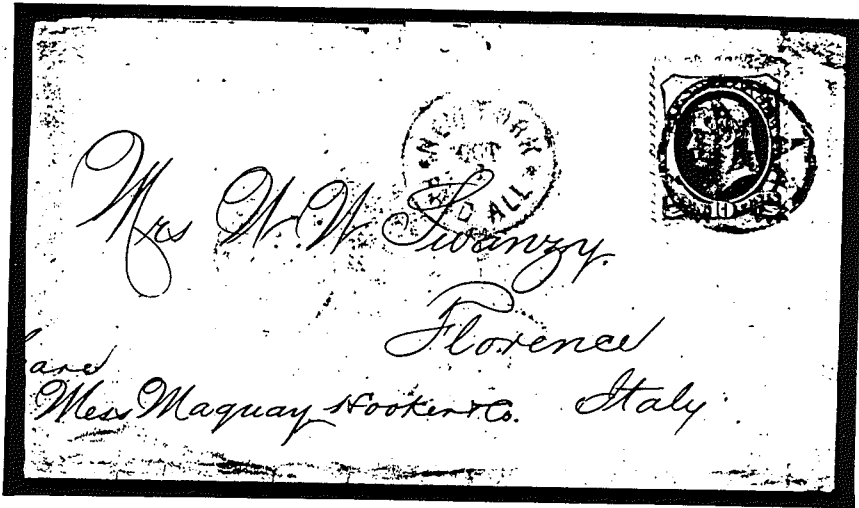 NEW YORK
OCT
PAID ALL
10
Mrs W. W. Swanzy.
Florence
Italy
Care
Mess Maquay Hooker & Co.